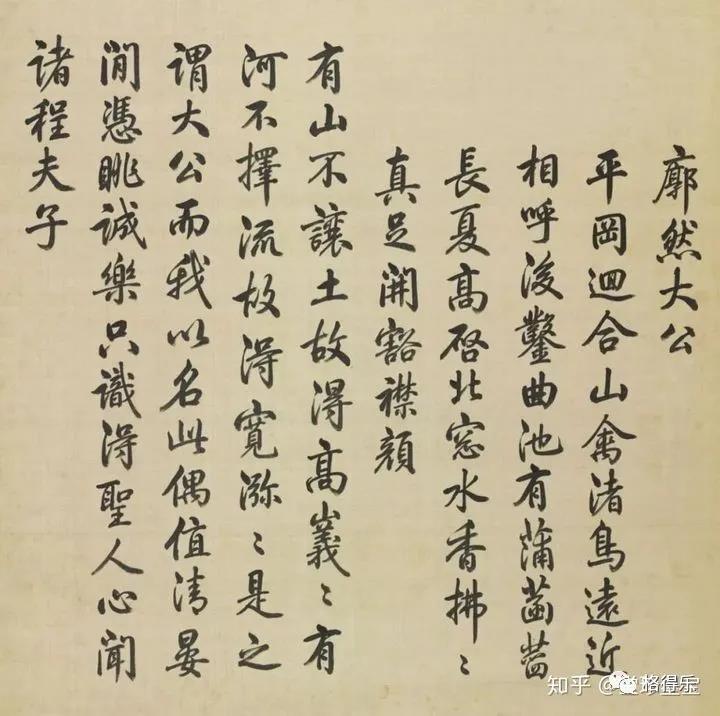 廓然大公
平岡迴合山禽渚鳥遠近
相呼後鑿曲池有蒲菡萏
長夏高啓北窓水香拂〻
真足開豁襟顏
有山不讓土故得高峩〻有
河不擇流故得寬㳽〻是之
謂大公而我以名此偶值清晏
閒憑眺誠樂只識得聖人心聞
諸程夫子
知乎 @
珞得乐